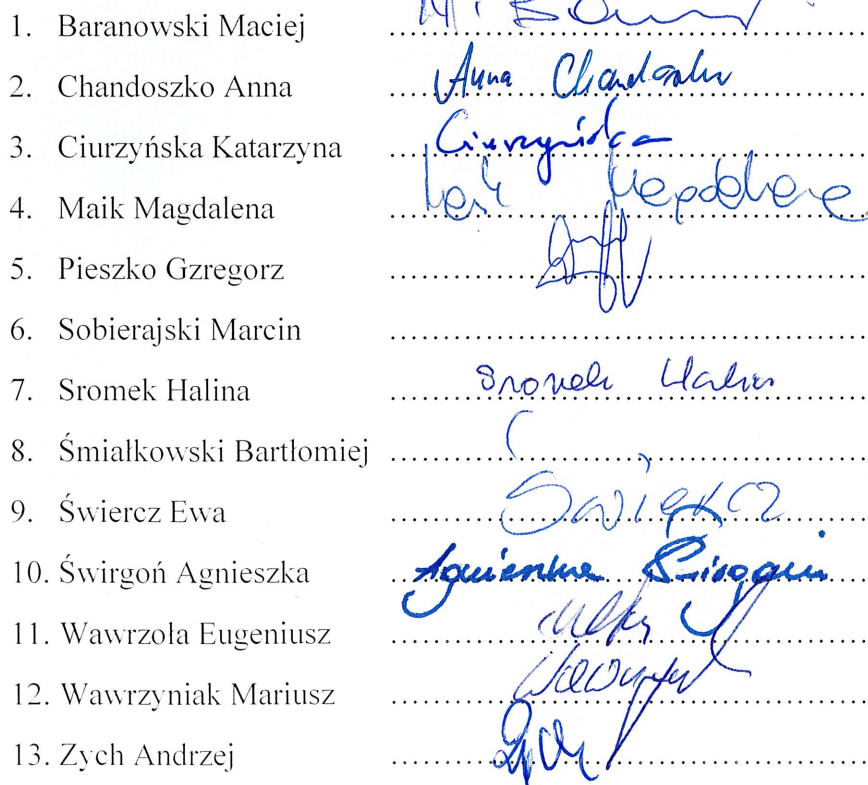 1. Baranowski Maciej
2. Chandoszko Anna Anna Chandoszko
3. Ciurzyńska Katarzyna Ciurzyńska
4. Maik Magdalena Maik Magdalena
5. Pieszko Gzregorz
6. Sobierajski Marcin
7. Sromek Halina Sromek Halina
8. Śmiałkowski Bartłomiej
9. Świercz Ewa Świercz
10. Świrgoń Agnieszka Agnieszka Świrgoń
11. Wawrzoła Eugeniusz
12. Wawrzyniak Mariusz
13. Zych Andrzej Zych